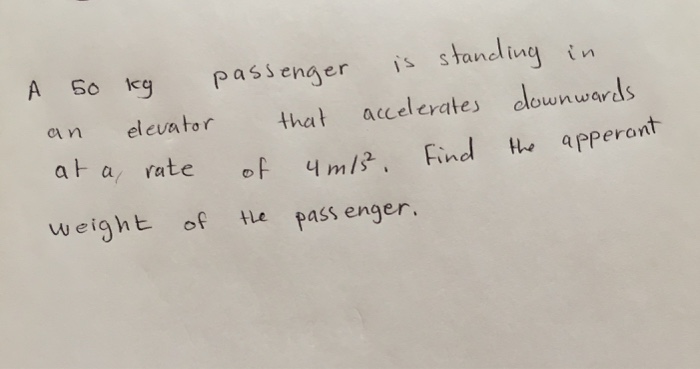 A 50 kg passenger is standing in
an elevator that accelerates downwards
at a rate of 4 m/s². Find the apperant
weight of the passenger.